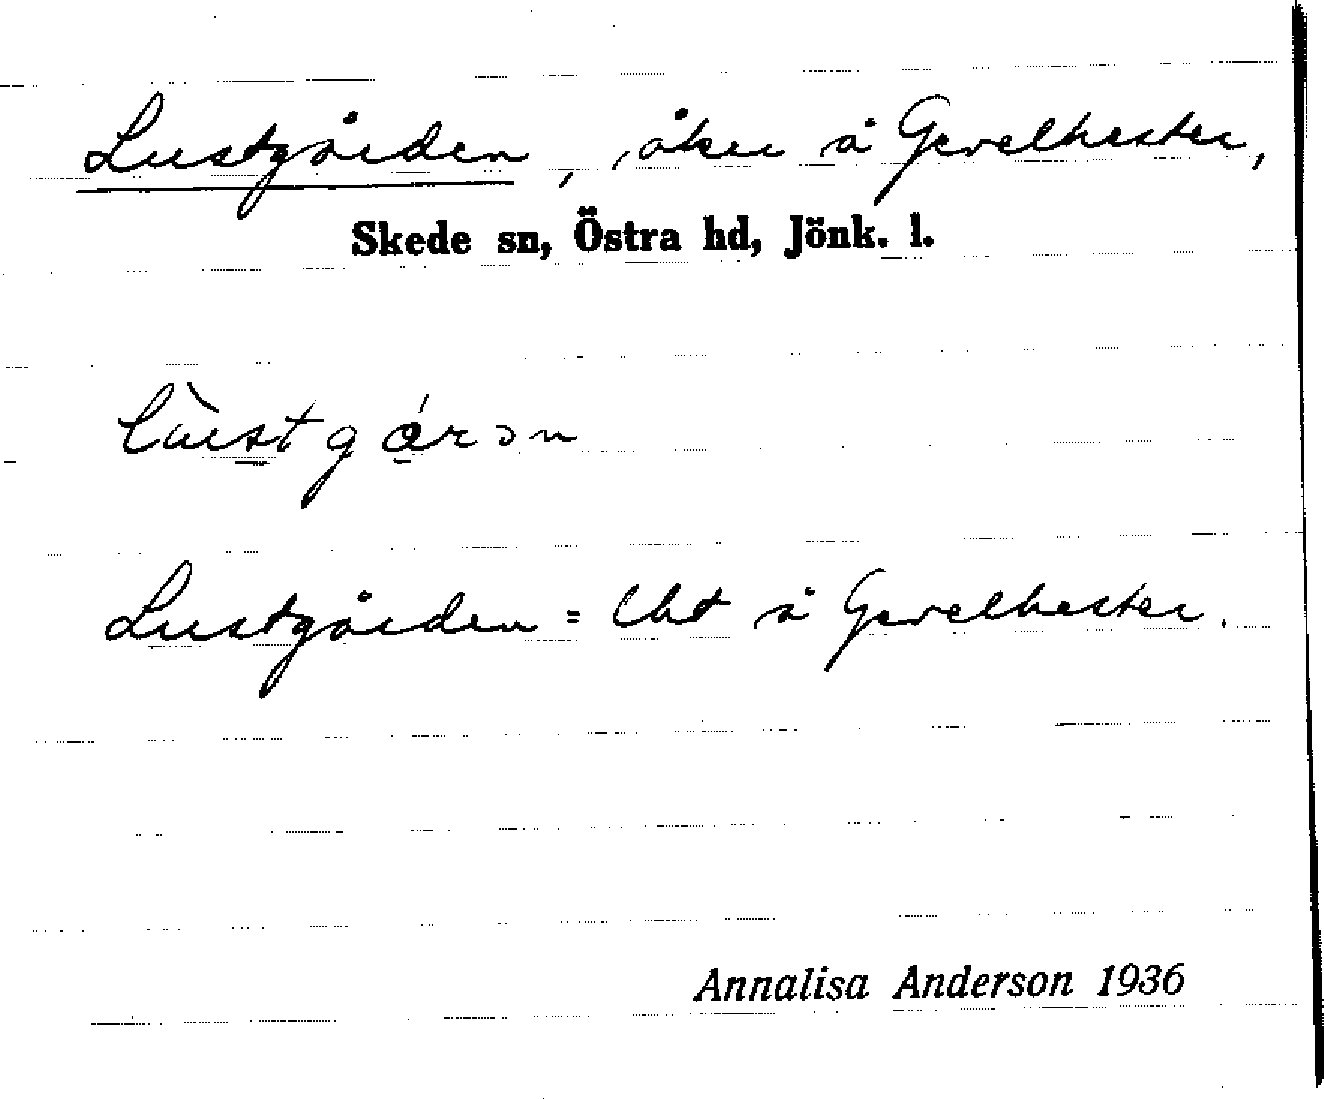 Lustgården, åker å Gevelhester,
Skede sn, Östra hd, Jönk. l.
lùstgårən
Lustgården = lht å Gevelhester.
Annalisa Anderson 1936